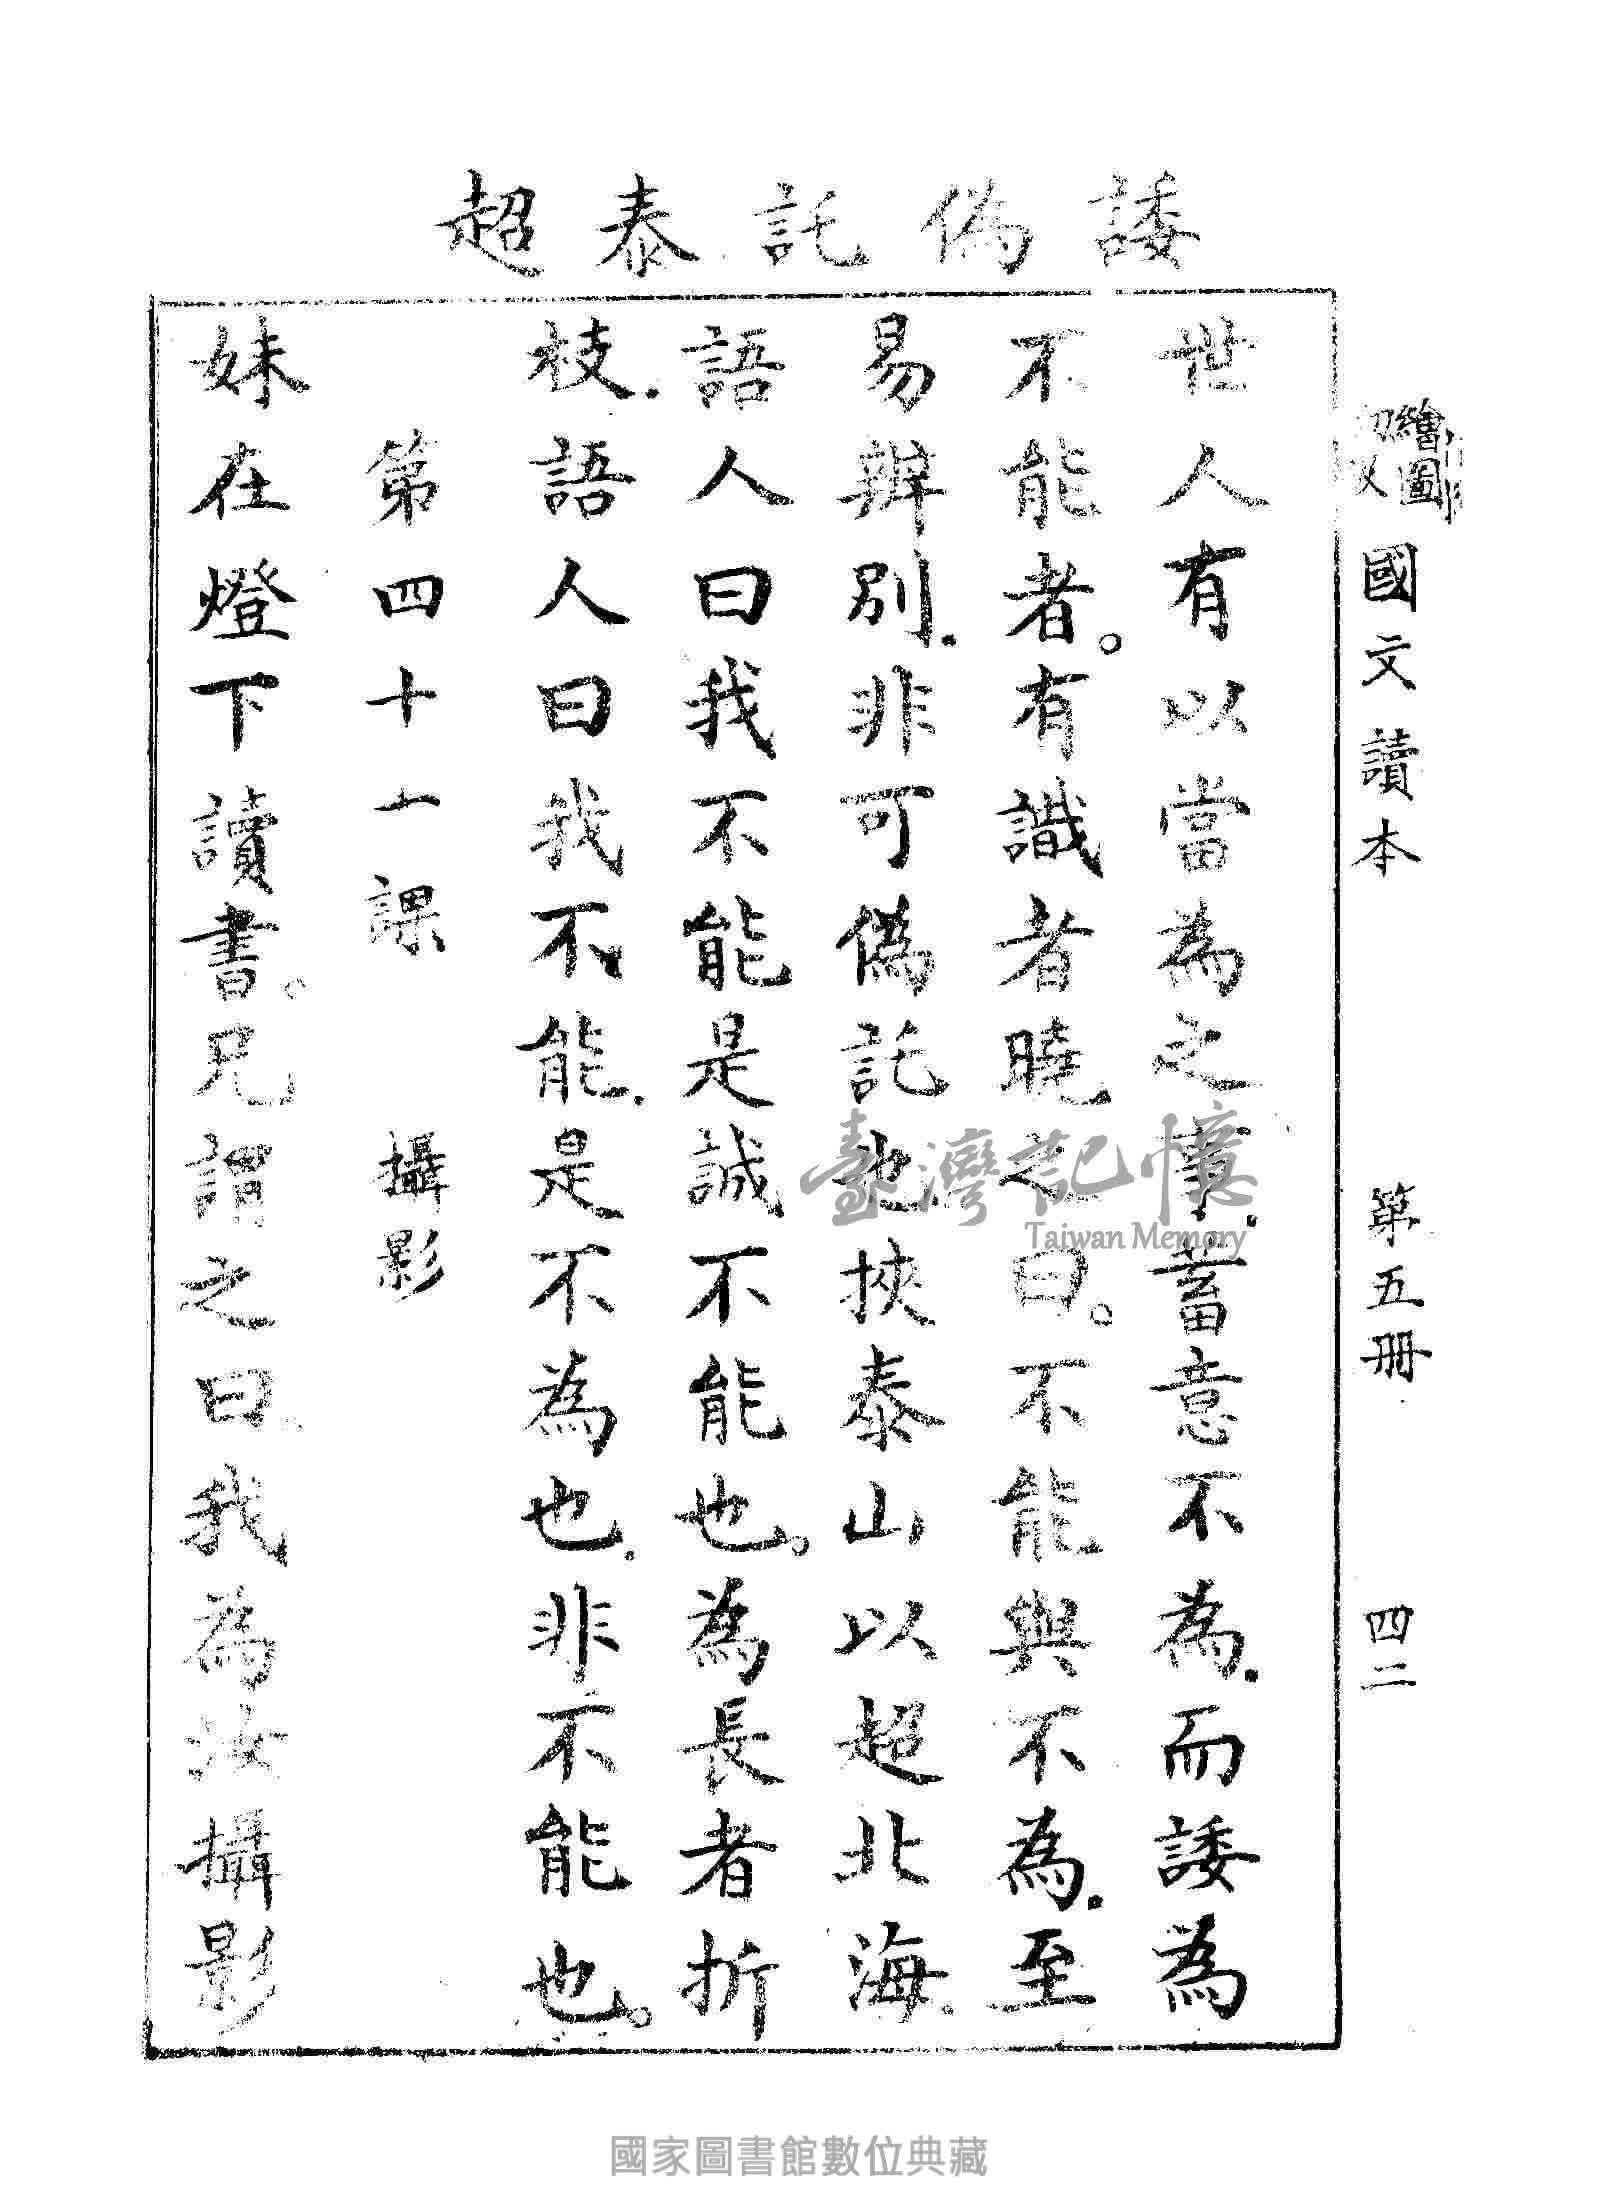 諉偽託泰超
繪圖
國文讀本 第五冊 四二
世人有以當為之事.蓄意不為.而諉為
不能者。有識者曉之曰。不能與不為.至
易辨別.非可偽託也.挾泰山以超北海.
語人曰我不能是誠不能也。為長者折
枝.語人曰我不能.是不為也.非不能也。
第四十一課 攝影
妹在燈下讀書。兄謂之曰我為汝攝影
臺灣記憶
Taiwan Memory
國家圖書館數位典藏